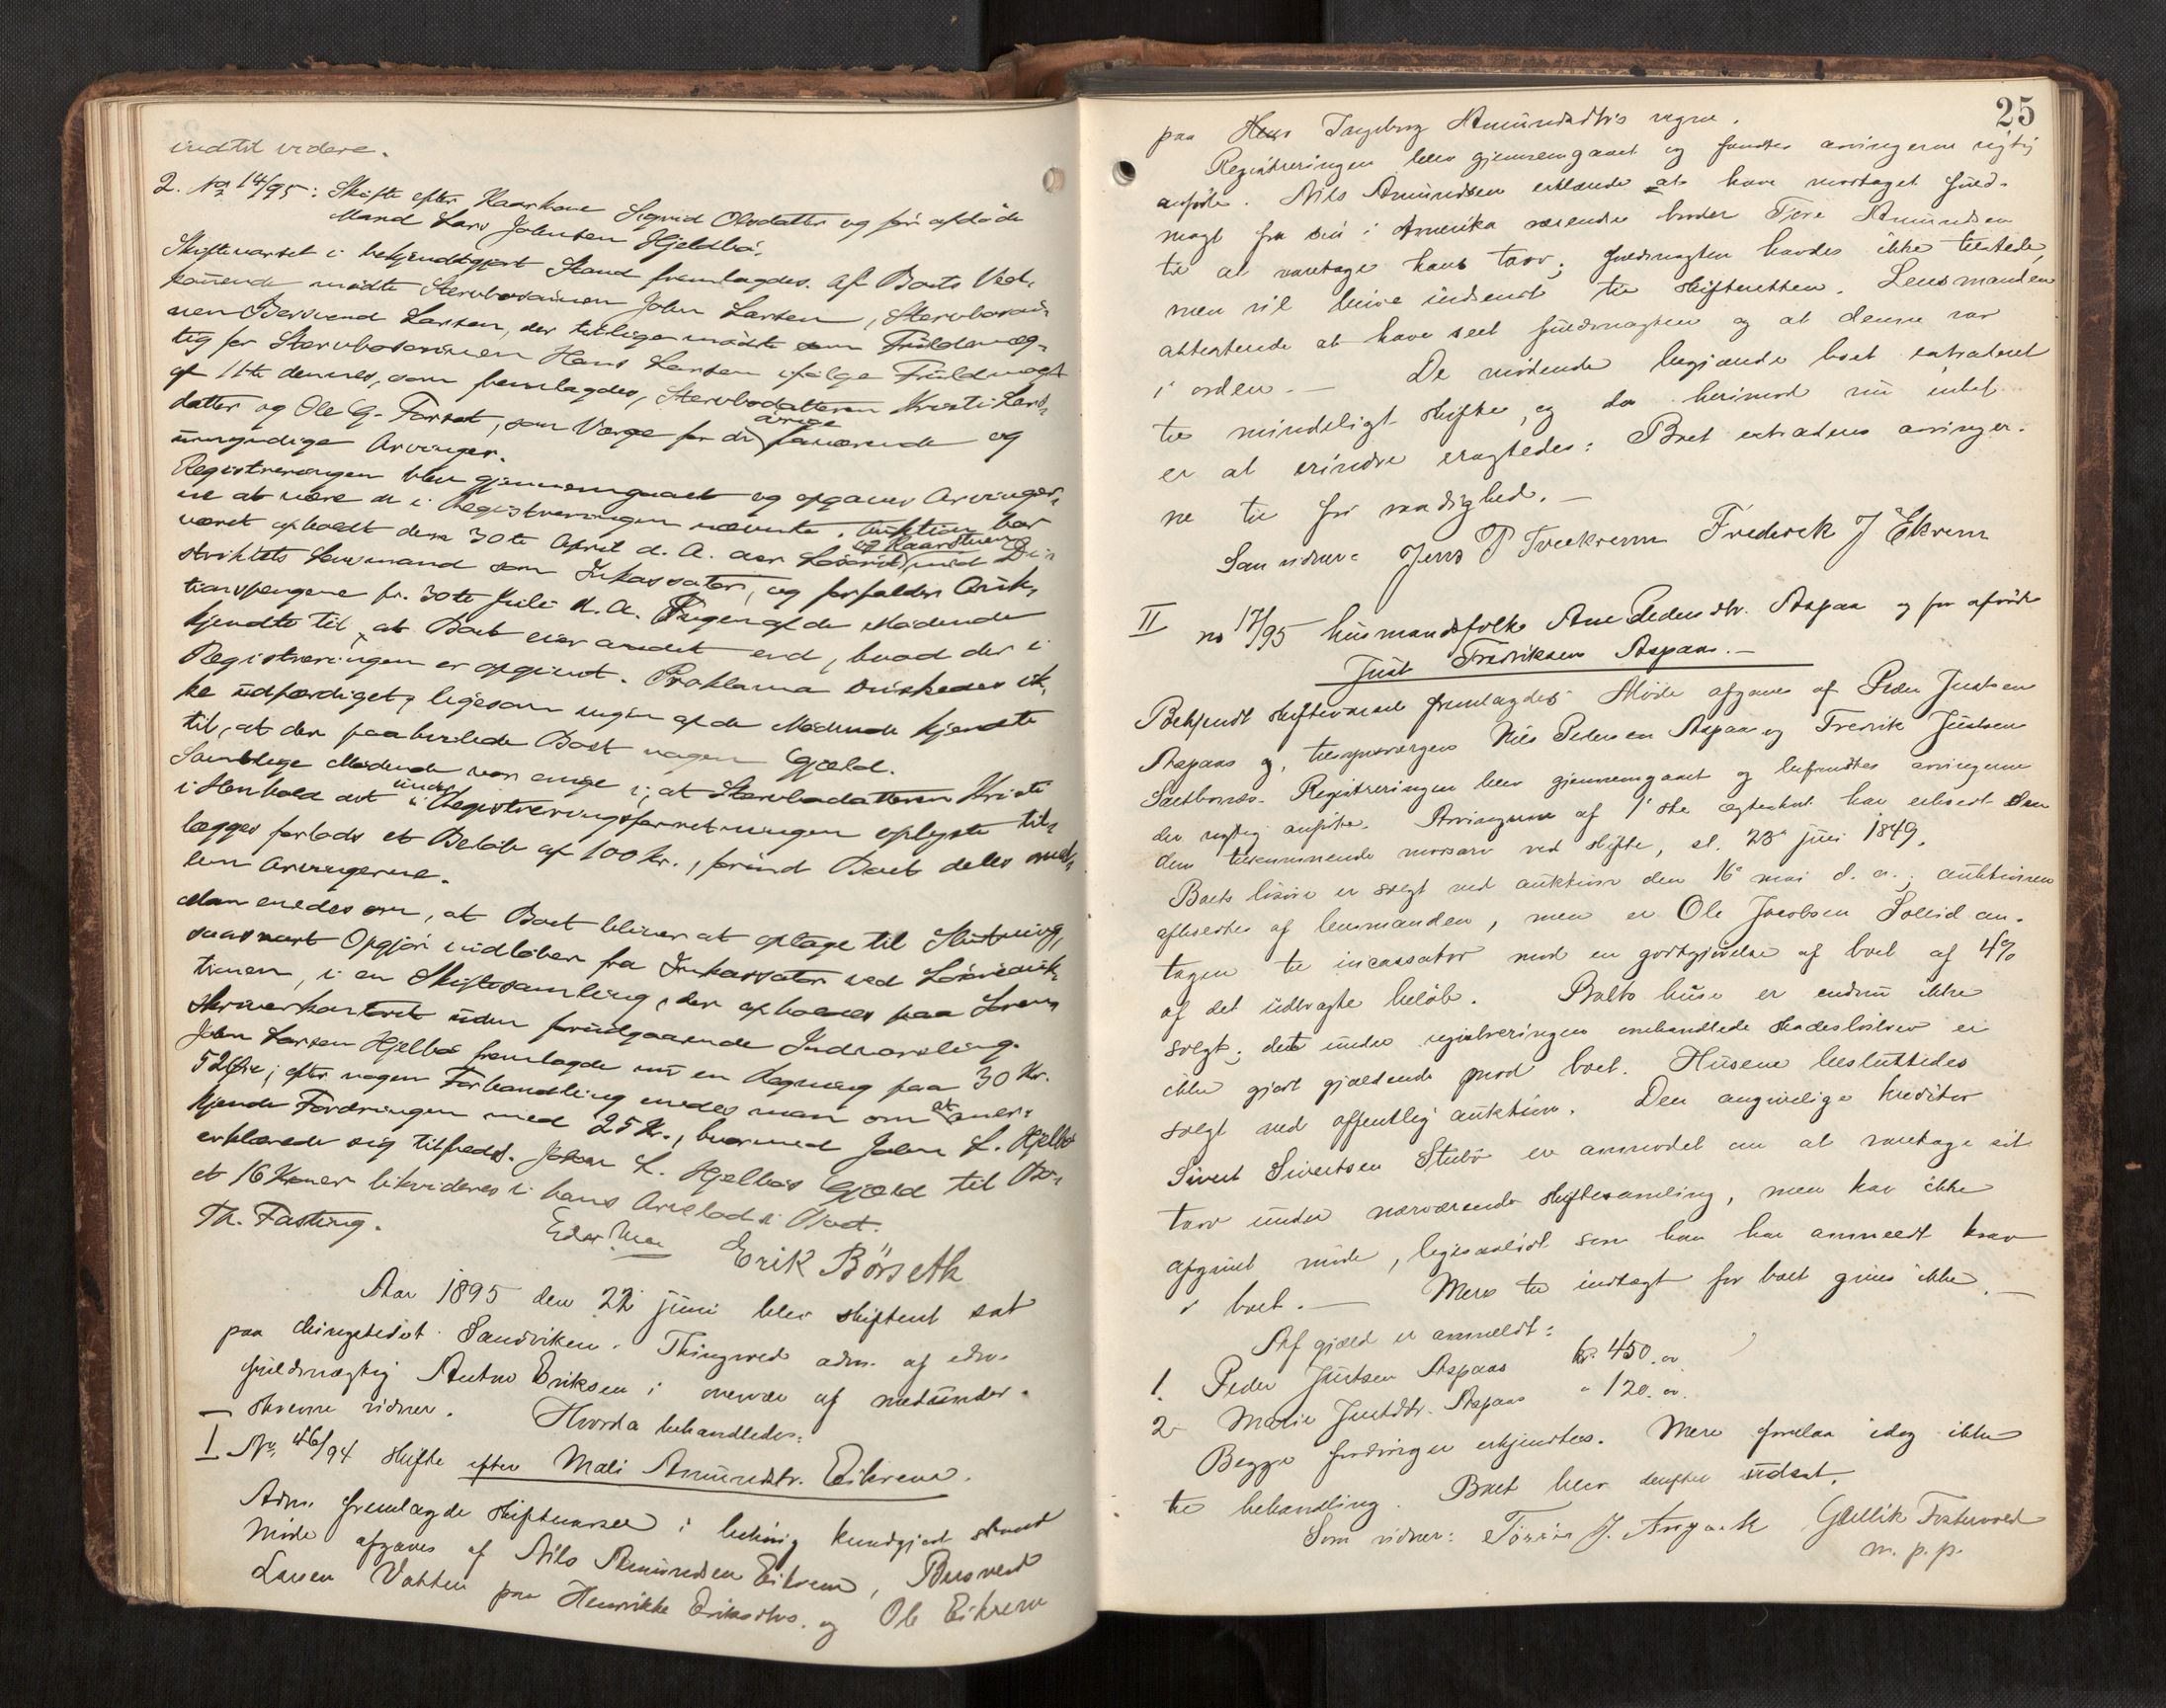 indtil videre.
2. No 14/95: Skifte efter Kaarkone Sigrid Olsdatter og før afdøde
Mand Lars Johnsen Hjelbø.
Skiftevarsel i bekjendtgjort Stand fremlagdes. Af Boets Ved-
kommende mødte Stervbosønnen John Larsen, Stervbosøn-
nen Bersvend Larsen, der tillige mødte som Fuldmæg-
tig for Stervbosønnen Hans Larsen ifølge Fuldmagt
af 11te dennes, som fremlagdes, Stervbodatteren Kristi Lars-
datter og Ole G. Forset, som Værge for de øvrige fraværende og
umyndige Arvinger.
Registreringen blev gjennemgaaet og opgaves Arvinger-
ne at være de i Registreringen nævnte. Auktion har
været afholdt den 30te April d. A. over Løsøre og Kaarstuen med Di-
striktets Lensmand som Inkassator, og forfalder Auk-
tionspengene pr. 30te Juli d. A. Ingen af de Mødende
kjendte til, at Boet eier andet end, hvad der i
Registreringen er opgivet. Proklama ønskedes ik-
ke udfærdiget, ligesom ingen af de Mødende kjendte
til, at der paahvilede Boet nogen Gjæld.
Samtlige Mødende var enige i, at Stervbodatteren Kristi
i Henhold det under Registreringsforretningen oplyste til-
lægges forlods et Beløb af 100 kr., førend Boet deles mel-
lem Arvingerne.
Man enedes om, at Boet bliver at optage til Slutning,
saasnart Opgjør indløber fra Inkassator ved Løsøreauk-
tionen, i en Skiftesamling, der afholdes paa Soren-
skriverkontoret uden forudgaaende Indvarsling.
John Larsen Hjelbø fremlagde nu en Regning paa 30 Kr.
52 Øre; efter nogen Forhandling enedes man om at aner-
kjende Fordringen med 25 Kr., hvormed John L. Hjelbø
erklærede sig tilfreds. John L. Hjelbøs Gjæld til Bo-
et 16 Kroner likvideres i hans Arvelod i Boet.
Th. Fasting.
Erik Börseth
Aar 1895 den 22 juni blev skifteret sat
paa thingstedet Sandviken. Thingsted adm. af edsv.
fuldmægtig Anton Eriksen i overvær af medunder-
skrevne vidner. Hvorda behandledes:
I No 46/94 skifte efter Mali Amundsdtr. Eikrem.
Adm. fremlagde skiftevarsel i behørig kundgjort stand
Møde afgaves af Nils Amundsen Eikrem, Bersvend
Larsen Vatten paa Henrikke Eriksdtrs. og Ole Eikrem
25
paa Ingeborg Amundsdtrs vegne.
Registreringen blev gjennemgaaet og fandtes arvingerne rigtig
anførte. Nils Amundsen erklærede at have modtaget fuld-
magt fra sin i Amerika værende broder Tore Amundsen
til at varetage hans tarv; fuldmagten havdes ikke tilstede,
men vil blive indsendt til skifteretten. Lensmanden
attesterede at have seet fuldmagten og at denne var
i orden. — De mødende begjærede boet extraderet
til mindeligt skifte, og da herimod nu intet
er at erindre eragtedes: Boet extraderes arvinger-
ne til fri raadighed. —
Som vidner: Jens P Tveekrem Frederek J Ekrem
II no 17/95 husmandsfolk Ane Pedersdtr. Aspaas og før afdøde
Just Fredriksen Aspaas. —
Bekjendt skiftevarsel fremlagdes Møde afgaves af Peder Justsen
Aspaas og tilsynsværgen Nils Pedersen Aspaas og Fredrik Justsen
Registreringen blev gjennemgaaet og befandtes arvingerne
der rigtig anførte. Arvingerne af 1ste ægteskab har erholdt den
dem tilkommende morsarv ved skifte, sl. 23de juni 1849.
Boets løsøre er solgt ved auktion den 16de mai d. a.; auktionen
afholdtes af lensmanden, men er Ole Jacobsen Sollid an-
tagen til incassator mod en godtgjørelse af boet af 4%
af det udbragte beløb. Boets huse er endnu ikke
solgt; det under registreringen omhandlede skadesløsbrev er
ikke gjort gjældende mod boet. Husene besluttedes
solgt ved offentlig auktion. Den angivelige kreditor
Sivert Sivertsen Stubø er anmodet om at varetage sit
tarv under nærværende skiftesamling, men har ikke
afgivet møde, ligesaalidt som han har anmeldt krav
i boet. — Mere til indtægt for boet gives ikke. —
Af gjæld er anmeldt:
1. Peder Justsen Aspaas kr. 450.00
2 Marie Justsdtr. Aspaas " 120.00
Begge fordringer erkjendtes. Mere forelaa idag ikke
til behandling. Boet blev derefter udsat.
Som vidner: J. Angvik Gullik Fostervold
m. p. p.